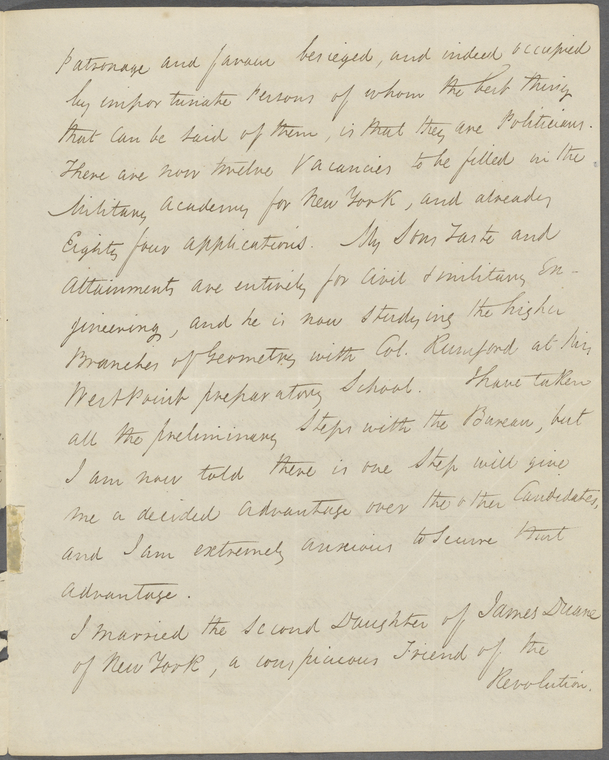 Patronage and favour besieged, and indeed occupied
by importunate Persons of whom the best thing
that can be said of them, is that they are Politicians.
There are now twelve Vacancies to be filled in the
Military Academy for New York, and already
Eighty four applications. My Sons Taste and
attainments are entirely for Civil & military En-
gineering, and he is now studying the higher
Branches of Geometry with Col. Rumford at his
West Point preparatory School. I have taken
all the preliminary Steps with the Bureau, but
I am now told there is one Step will give
me a decided advantage over the other Candidates,
and I am extremely anxious to secure that
advantage.
I married the second Daughter of James Duane
of New York, a conspicuous Friend of the
Revolution.